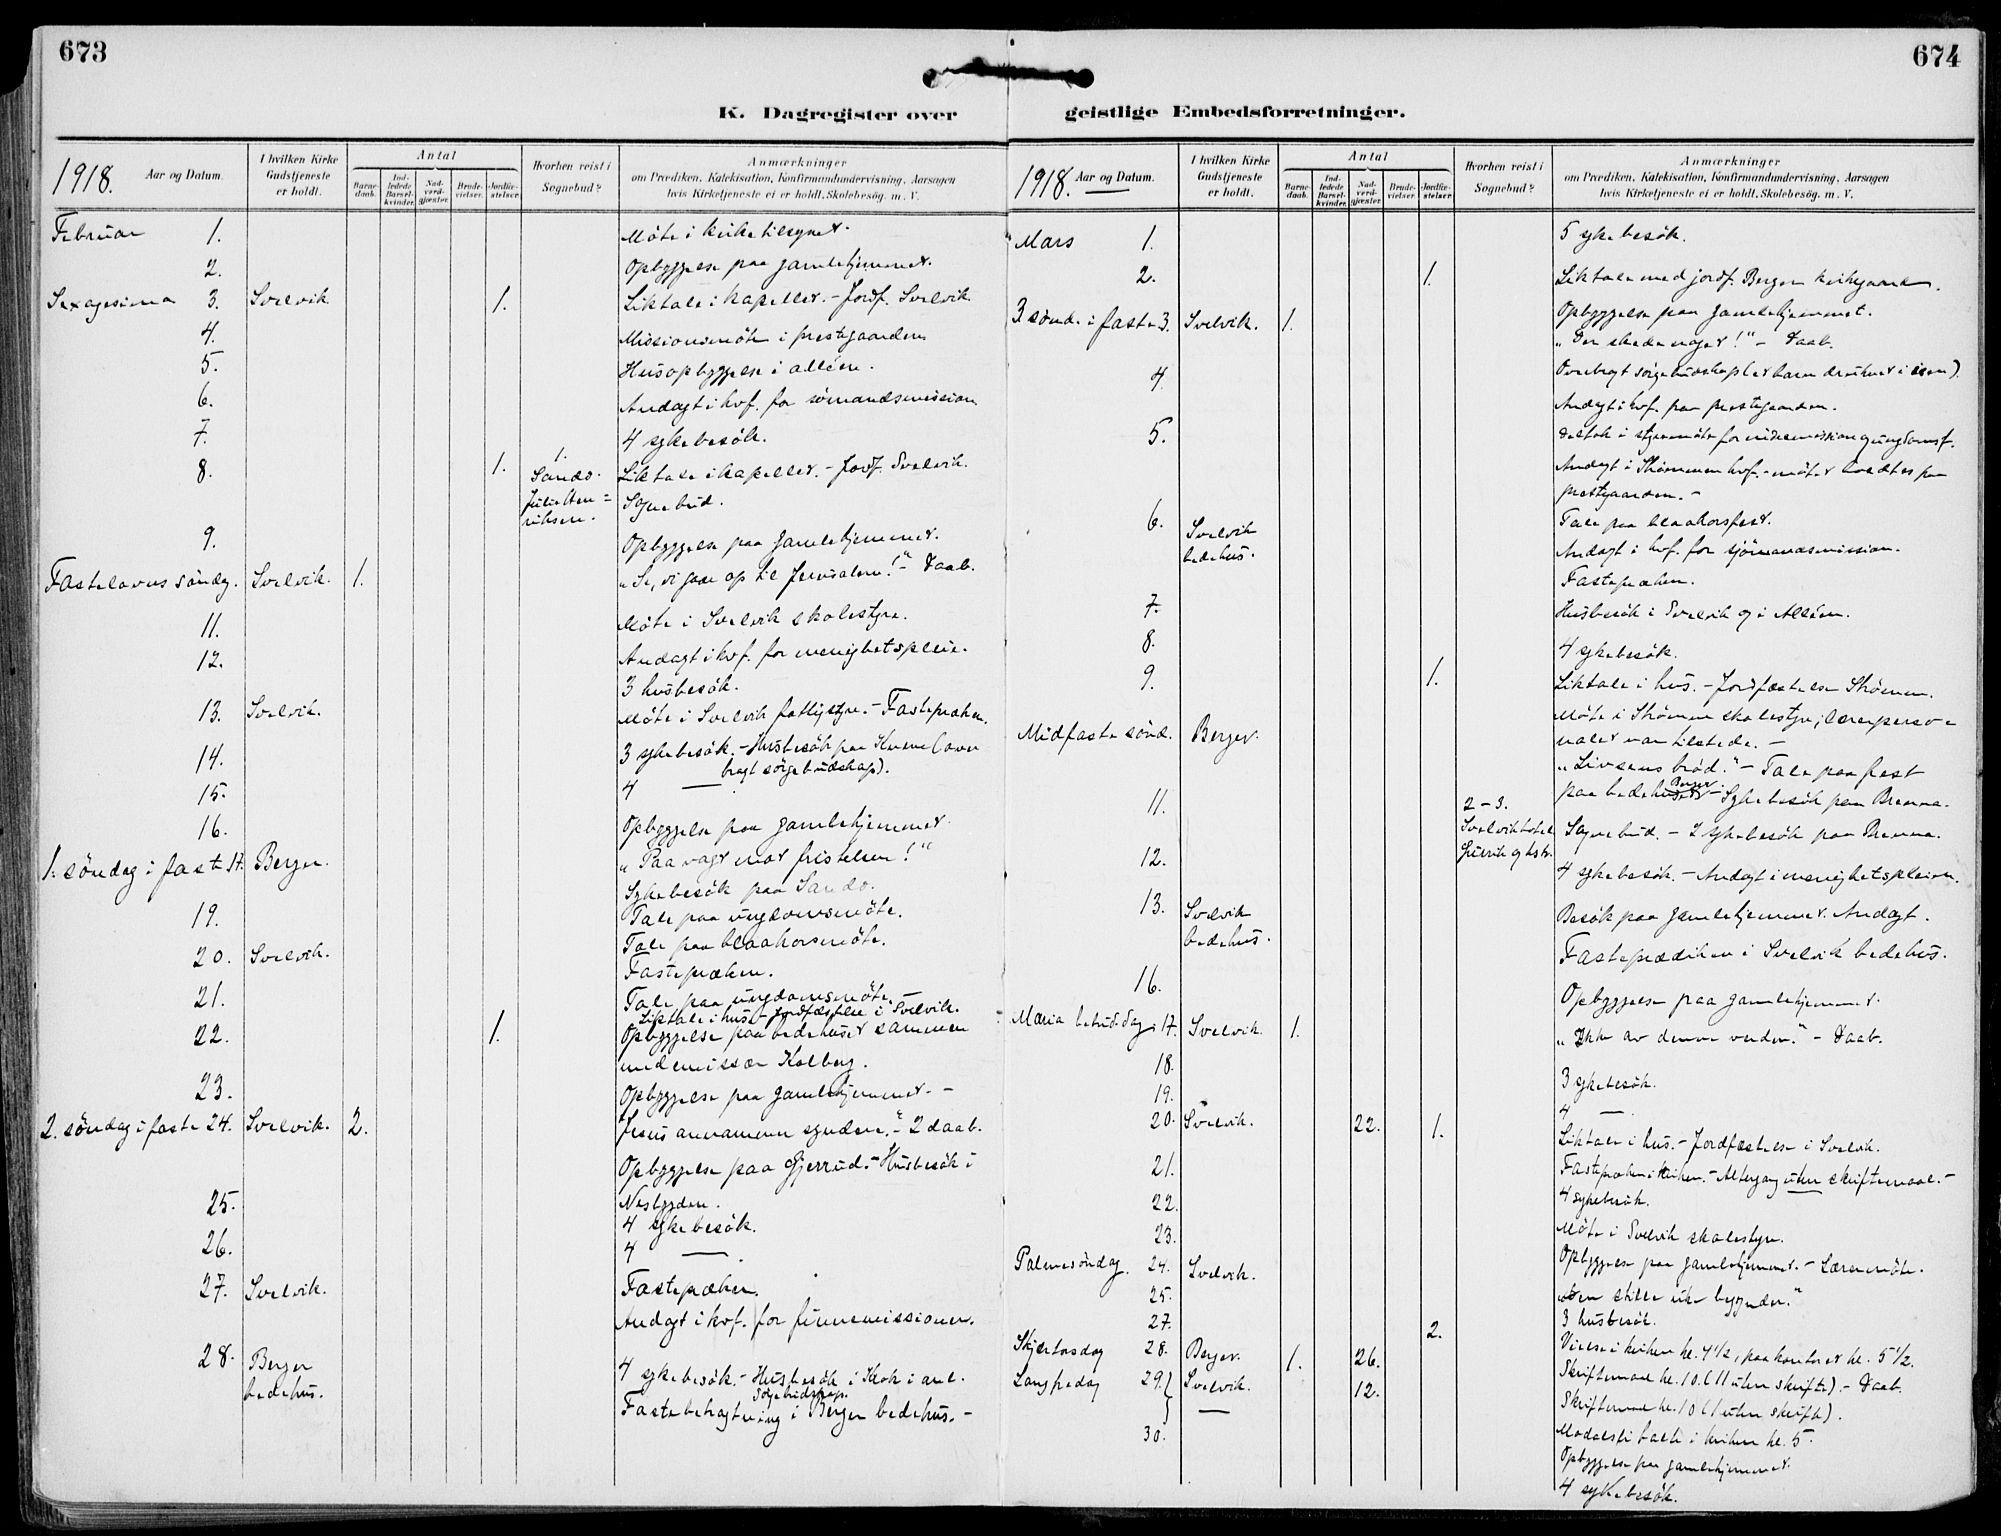 673
K. Dagregister over
1918. Aar og Datum.
I hvilken Kirke Gudstjeneste er holdt.
Antal
Barnedaab.
Indledede Barselkvinder.
Nadverdgjæster.
Brudevielser.
Jordfæstelser.
Hvorhen reist i Sognebud?
Anmærkninger
om Prædiken, Katekisation, Konfirmandundervisning, Aarsagen
hvis Kirketjeneste ei er holdt, Skolebesøg. m. V.
Februar 1. Möte i kirketilsynet.
2. Opbyggelse paa gamlehjemmet.
Sexagesima 3. Svelvik 1. Liktale i kapellet. - Jordf. Svelvik
4. Missionsmöte i prestegaarden
5. Husopbyggelse i alléen.
6. Andagt i kvf. for sømandsmission
7. 4 sykebesök.
8. 1. 1. Sando. Liktale i kapellet. - Jordf. Svelvik.
Julie Hen=
riksen. Sognebud.
9. Opbyggelse paa gamlehjemmet.
Fastelavns söndag. Svelvik. 1. „Se, vi gaar op til Jerusalem!" - Daab.
11. Möte i Svelvik skolestyre.
12. Andagt i kvf. for menighetspleie.
3 husbesök.
13. Svelvik. Möte i Svelvik fattigstyre. - Fastepræken.
14. 3 sykebesök. - Husbesök paa (over
bragt sörgebudskap).
15. 4 —
16. Opbyggelse paa gamlehjemmet.
1. söndag i faste 17. Berger. „Paa vagt mot fristelsen!"
Sykebesök paa Sando.
19. Tale paa ungdomsmöte.
Tale paa blaakorsmöte.
20. Svelvik. Fastepræken.
21. Tale paa ungdomsmöte.
Liktale i hus - Jordfæstelse i Svelvik.
22. 1. Opbyggelse paa bedehuset sammen
med emissær Kolberg.
23. Opbyggelse paa gamlehjemmet. -
2. söndag i faste 24. Svelvik. 2. „Jesus annammer syndere." - 2 daab.
Opbyggelse paa Gjerrud. - Husbesök i
25. Nesbygden.
4 sykebesök.
26. 4 — .
27. Svelvik. Fastepræken.
Andagt i kvf. for finnemissionen.
28. Berger
bedehus. 4 sykebesök. - Husbesök i Krok i anl.
sörgebudskap.
Fastebetragtning i Berger bedehus. -
674
geistlige Embedsforretninger.
1918. Aar og Datum.
I hvilken Kirke Gudstjeneste er holdt.
Antal
Barnedaab.
Indledede Barselkvinder.
Nadverdgjæster.
Brudevielser.
Jordfæstelser.
Hvorhen reist i Sognebud?
Anmærkninger
om Prædiken, Katekisation, Konfirmandundervisning, Aarsagen
hvis Kirketjeneste ei er holdt, Skolebesög. m. V.
Mars 1. 5 sykebesök.
2. 1. Liktale med jordf. Berger kirkegaard.
Opbyggelse paa gamlehjemmet.
3. sönd. i faste 3. Svelvik. 1. „Der skede noget!" - Daab.
4. Overbragt sörgebudskap (et barn druknet i isen).
Andagt i kvf. paa prestegaarden.
5. Deltok i styremöte for indremission og ungdomsf.
Andagt i Strömmen kvf. - mötet holdtes paa
prestegaarden. -
6. Svelvik
bedehus. Tale paa blaakorsfest.
Andagt i kvf. for sjömandsmission.
Fastepræken.
7. Husbesök i Svelvik og i Alléen.
8. 4 sykebesök.
9. 1. Liktale i hus. - Jordfæstelse Strömm.
Möte i Strömm skolestyre; lærerperso=
nalet var tilstede. -
Midfaste sönd. Berger. „Livsens bröd." - Tale paa fest
paa Berger bedehus - Sykebesök paa Brenna.
11. 2 - 3.
Svelvik hotel Sognebud. - 2 sykebesök paa Brenna.
12. 4 sykebesök. - Andagt i menighetspleien.
13. Svelvik
bedehus. Besök paa gamlehjemmet. Andagt.
Fastepædiken i Svelvik bedehus.
16. Opbyggelse paa gamlehjemmet.
Maria budsk. dag 17. Svelvik. 1. „Ikke av denne verden." - Daab.
18. 3 sykebesök.
19. 4 —
20. Svelvik. 22. 1. Liktale i hus. - Jordfæstelse i Svelvik.
Fastepræken i kirken. - Altergang uten skriftemaal. -
21. 4 sykebesök.
22. Möte i Svelvik skolestyre.
23. Opbyggelse paa gamlehjemmet. - Læremöte.
Palmesöndag. 24. Svelvik. „Den stille uke begynder."
25. 3 husbesök.
27. 2. Vielse i kirken kl. 4½, paa kontoret kl. 5½.
Skjærtorsdag 28. Berger. 1. 26. Skriftemaal kl. 10 (11 uten skrifte). - Daab.
Langfredag 29. Svelvik. 12. Skriftemaal kl. 10 (11 uten skrifte).
—
30. i kirken kl. 5.
Opbyggelse paa gamlehjemmet.
4 sykebesök.